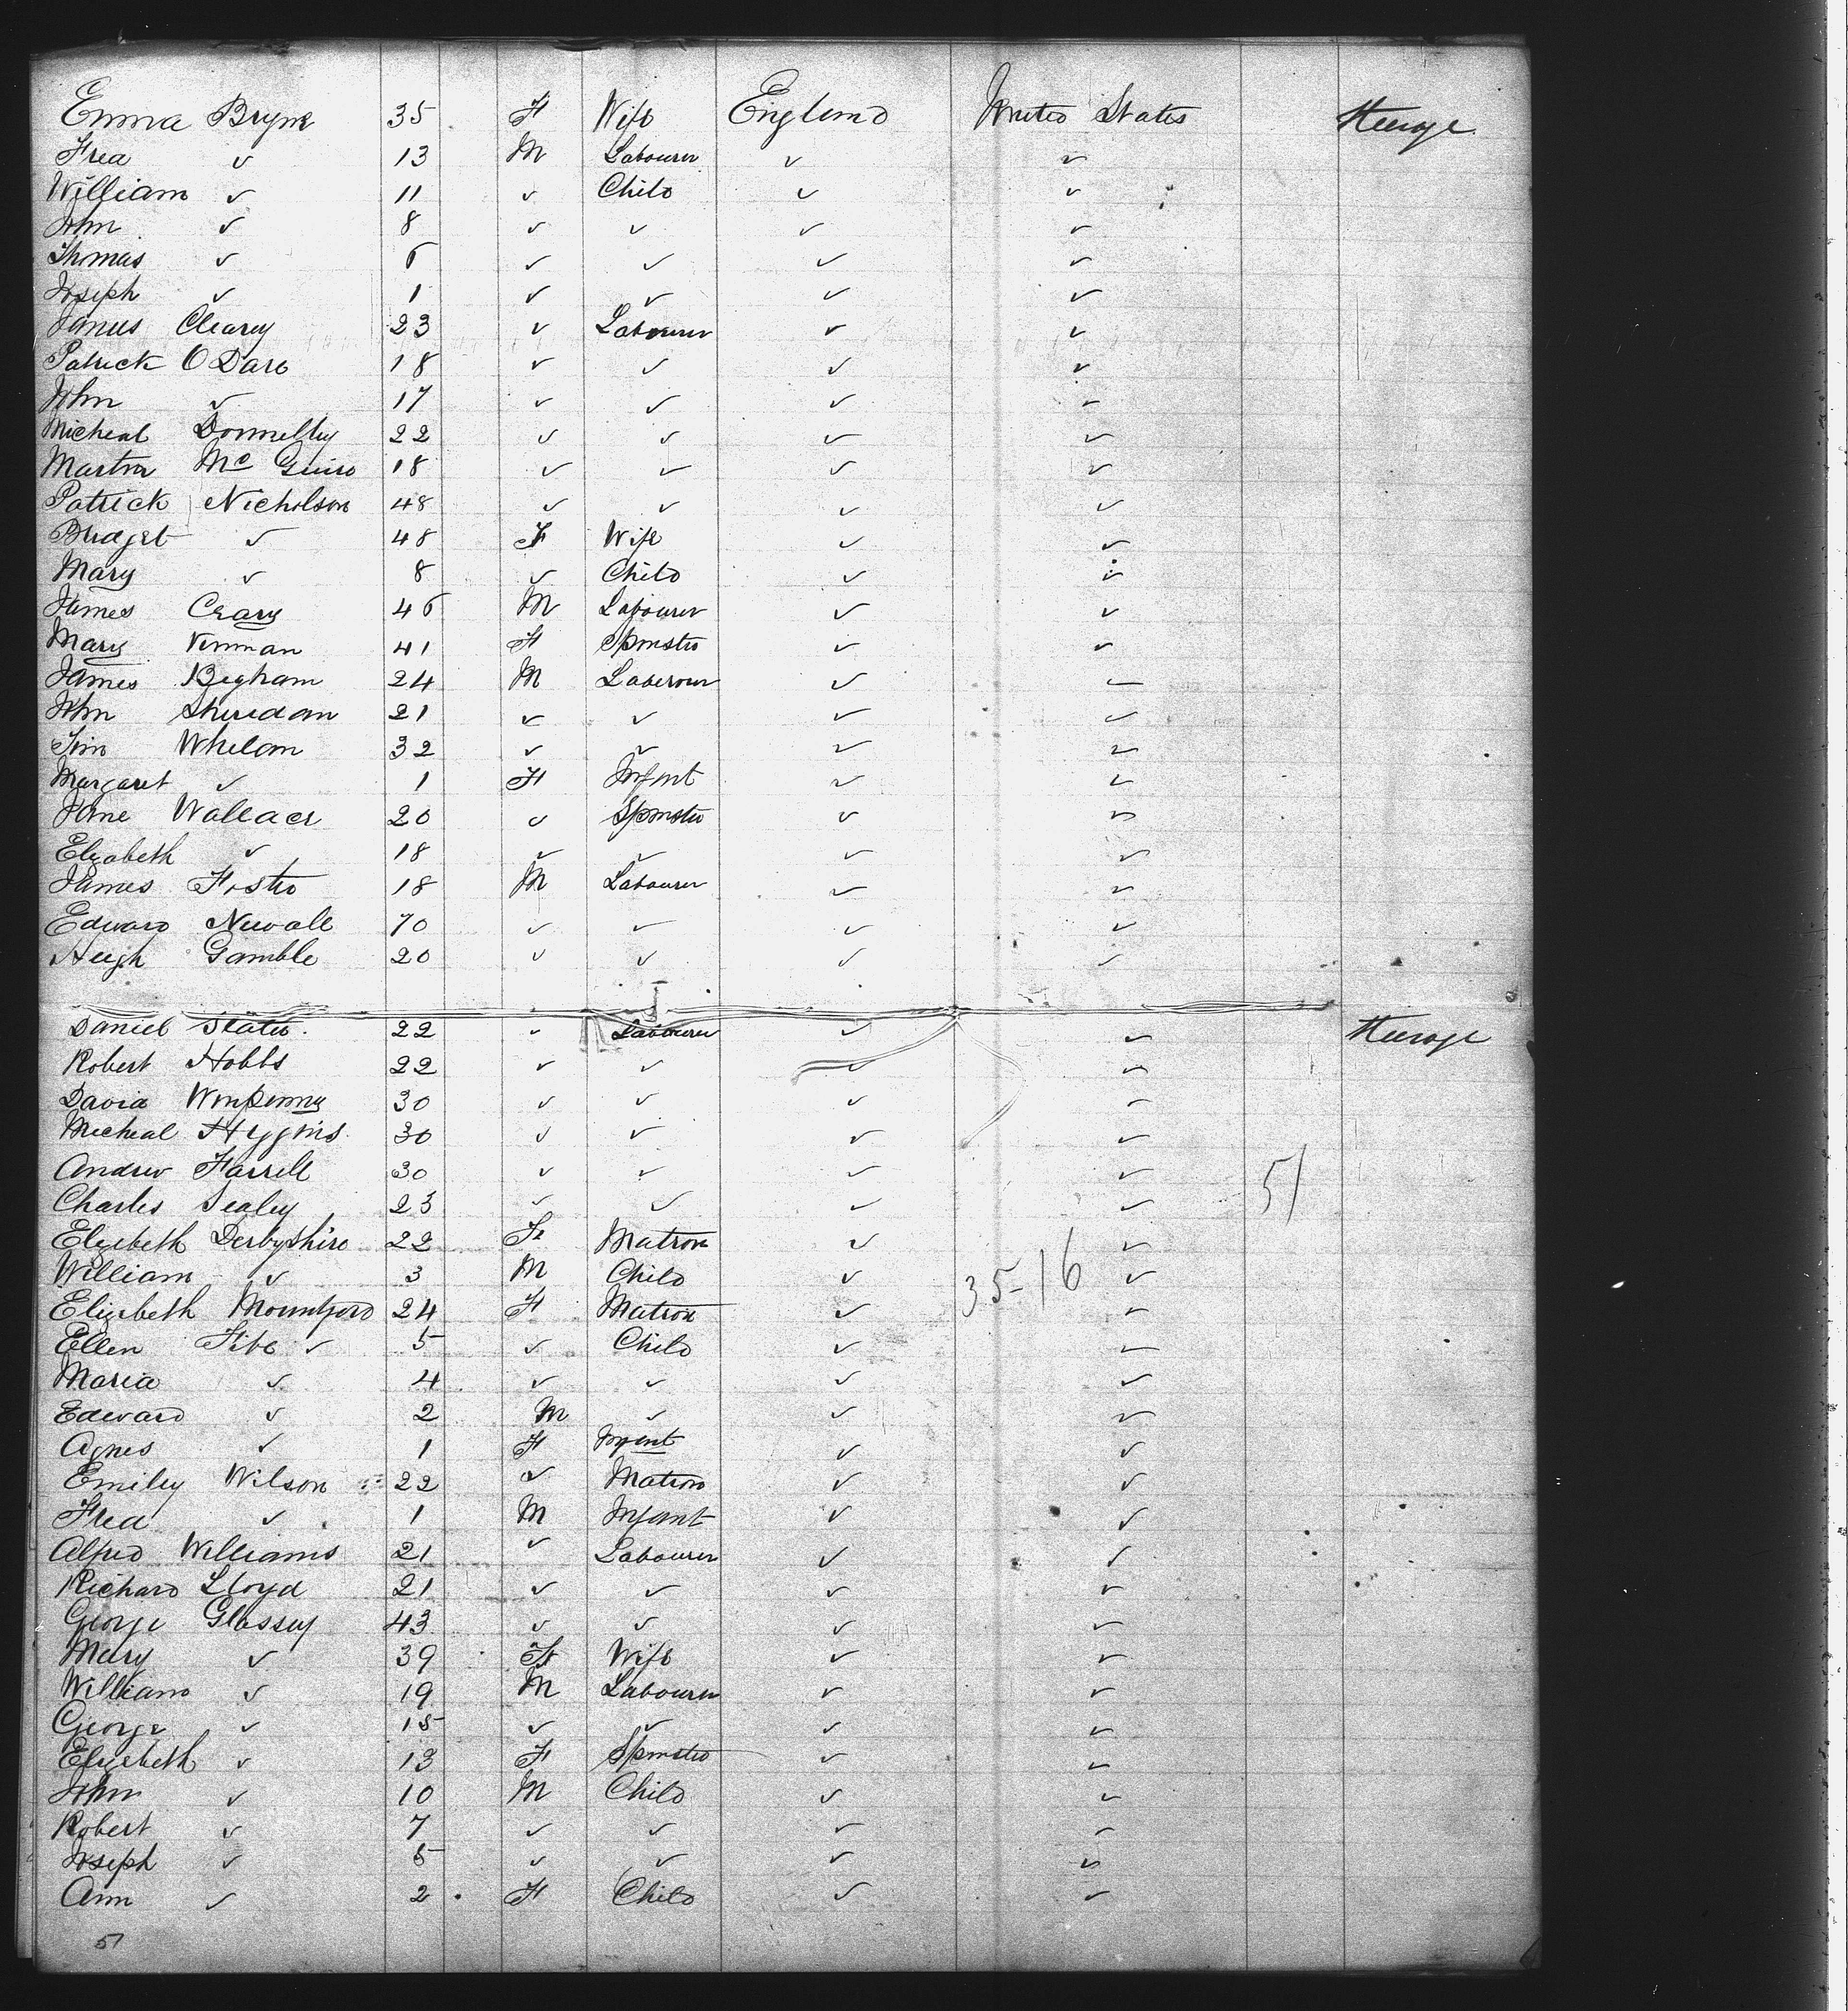 Emma Bryne 35 F Wife England United States Steerage
Fred ✓ 13 M Labourer ✓ ✓
William ✓ 11 ✓ Child ✓ ✓
John ✓ 8 ✓ ✓ ✓ ✓
Thomas ✓ 6 ✓ ✓ ✓ ✓
Joseph ✓ 1 ✓ ✓ ✓ ✓
James Cleary 23 ✓ Labourer ✓ ✓
Patrick O Dare 18 ✓ ✓ ✓ ✓
John ✓ 17 ✓ ✓ ✓ ✓
Micheal Donnelly 22 ✓ ✓ ✓ ✓
Martin Mc Guire 18 ✓ ✓ ✓ ✓
Patrick Nicholson 48 ✓ ✓ ✓ ✓
Bridget ✓ 48 F Wife ✓ ✓
Mary ✓ 8 ✓ Child ✓ ✓
James Crary 46 M Labourer ✓ ✓
Mary 41 F Spinster ✓ ✓
James Bigham 24 M Labourer ✓ ✓
John Sheridan 21 ✓ ✓ ✓ ✓
Tim Whelan 32 ✓ ✓ ✓ ✓
Margaret ✓ 1 F Infant ✓ ✓
Jane Wallace 20 ✓ Spinster ✓ ✓
Elizabeth ✓ 18 ✓ ✓ ✓ ✓
James Foster 18 M Labourer ✓ ✓
Edward Newall 70 ✓ ✓ ✓ ✓
Hugh Gamble 20 ✓ ✓ ✓ ✓
Daniel Slater 22 ✓ Labourer ✓ ✓ Steerage
Robert Hobbs 22 ✓ ✓ ✓ ✓
David Winpenny 30 ✓ ✓ ✓ ✓
Micheal Higgins 30 ✓ ✓ ✓ ✓
Andrew Farrell 30 ✓ ✓ ✓ ✓ 51
Charles Sealey 23 ✓ ✓ ✓ ✓
Elizebeth Derbyshire 22 F Matron ✓ ✓
William ✓ 3 M Child ✓ 35-16 ✓
Elizebeth Mountford 24 F Matron ✓ ✓
Ellen ✓ 5 ✓ Child ✓ ✓
Maria ✓ 4 ✓ ✓ ✓ ✓
Edward ✓ 2 M ✓ ✓ ✓
Agnes ✓ 1 F Infant ✓ ✓
Emiley Wilson 22 ✓ Matron ✓ ✓
Fred ✓ 1 M Infant ✓ ✓
Alfred Williams 21 ✓ Labourer ✓ ✓
Richard Lloyd 21 ✓ ✓ ✓ ✓
George Glassey 43 ✓ ✓ ✓ ✓
Mary ✓ 39 F Wife ✓ ✓
William ✓ 19 M Labourer ✓ ✓
George ✓ 15 ✓ ✓ ✓ ✓
Elizebeth ✓ 13 F Spinster ✓ ✓
John ✓ 10 M Child ✓ ✓
Robert ✓ 7 ✓ ✓ ✓ ✓
Joseph ✓ 5 ✓ ✓ ✓ ✓
Ann ✓ 2 F Child ✓ ✓
51